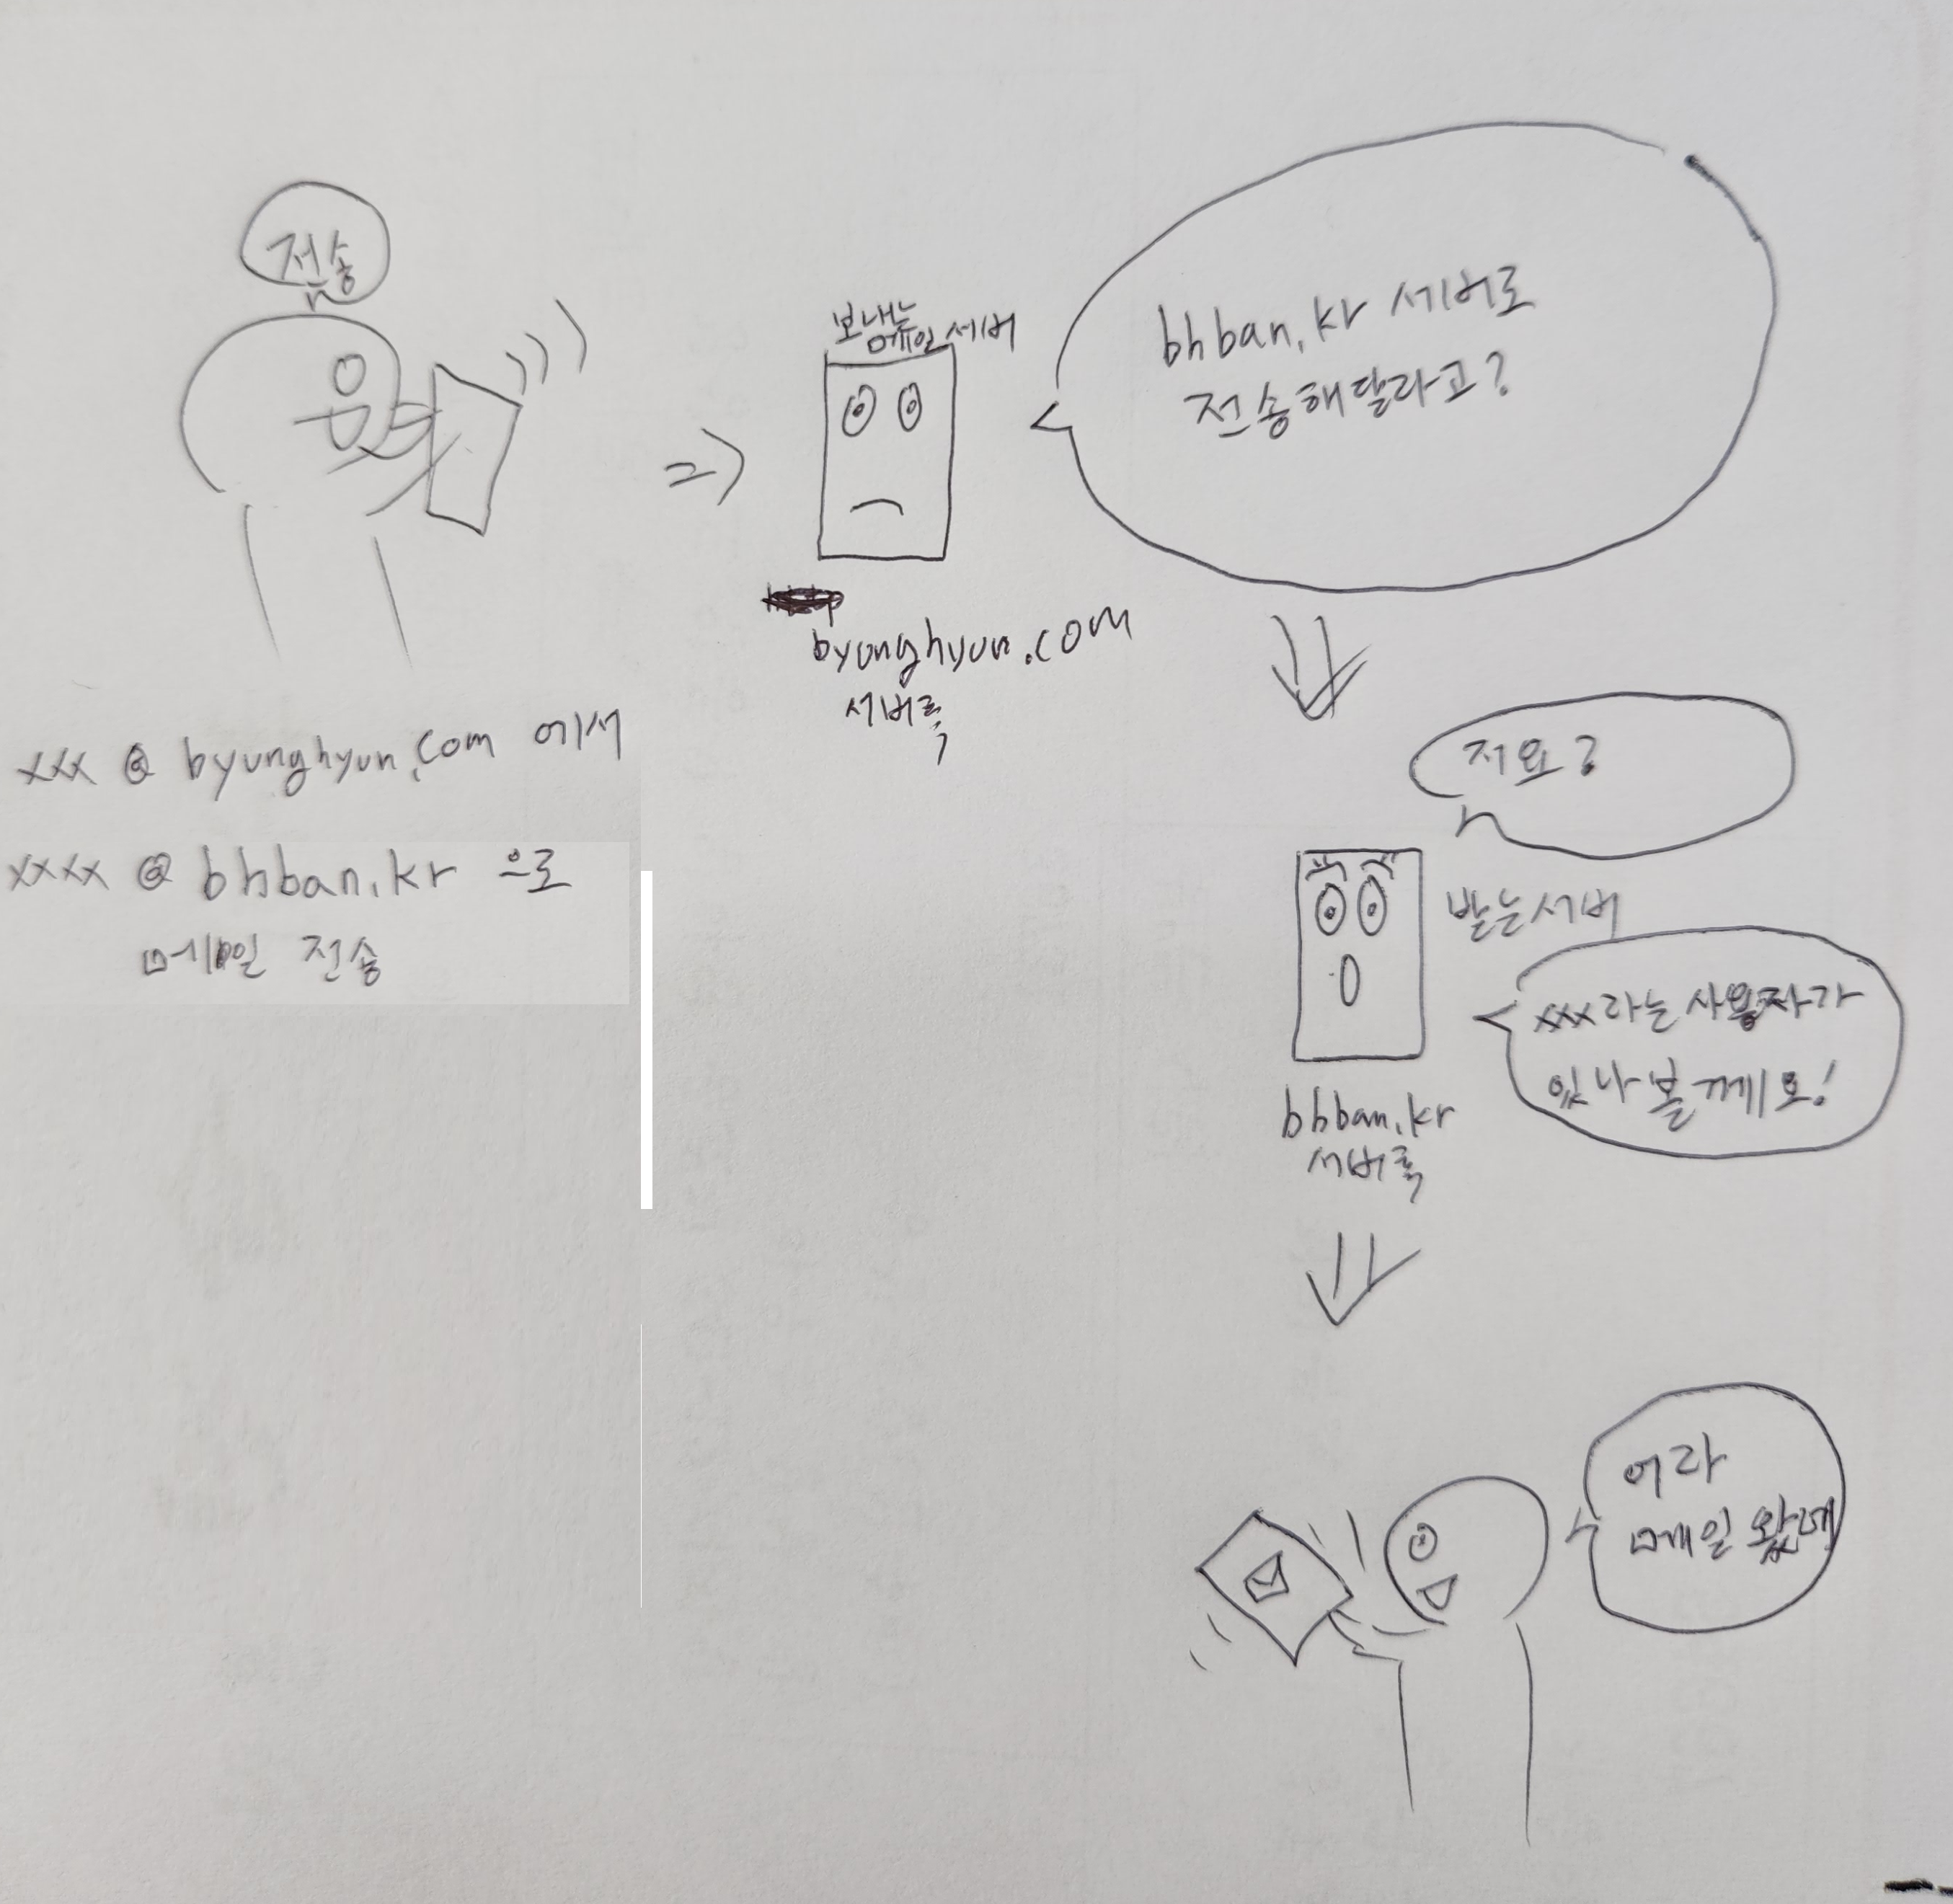 전송
xxx @ byunghyun.com 에서
xxxx @ bhban.kr 으로
메일 전송
보내는
메일 서버
byunghyun.com
서버측
bhban.kr 서버로
전송해달라고?
저요?
받는서버
xxx라는 사용자가
있나 볼께요!
bhban.kr
서버측
어라
메일 왔네